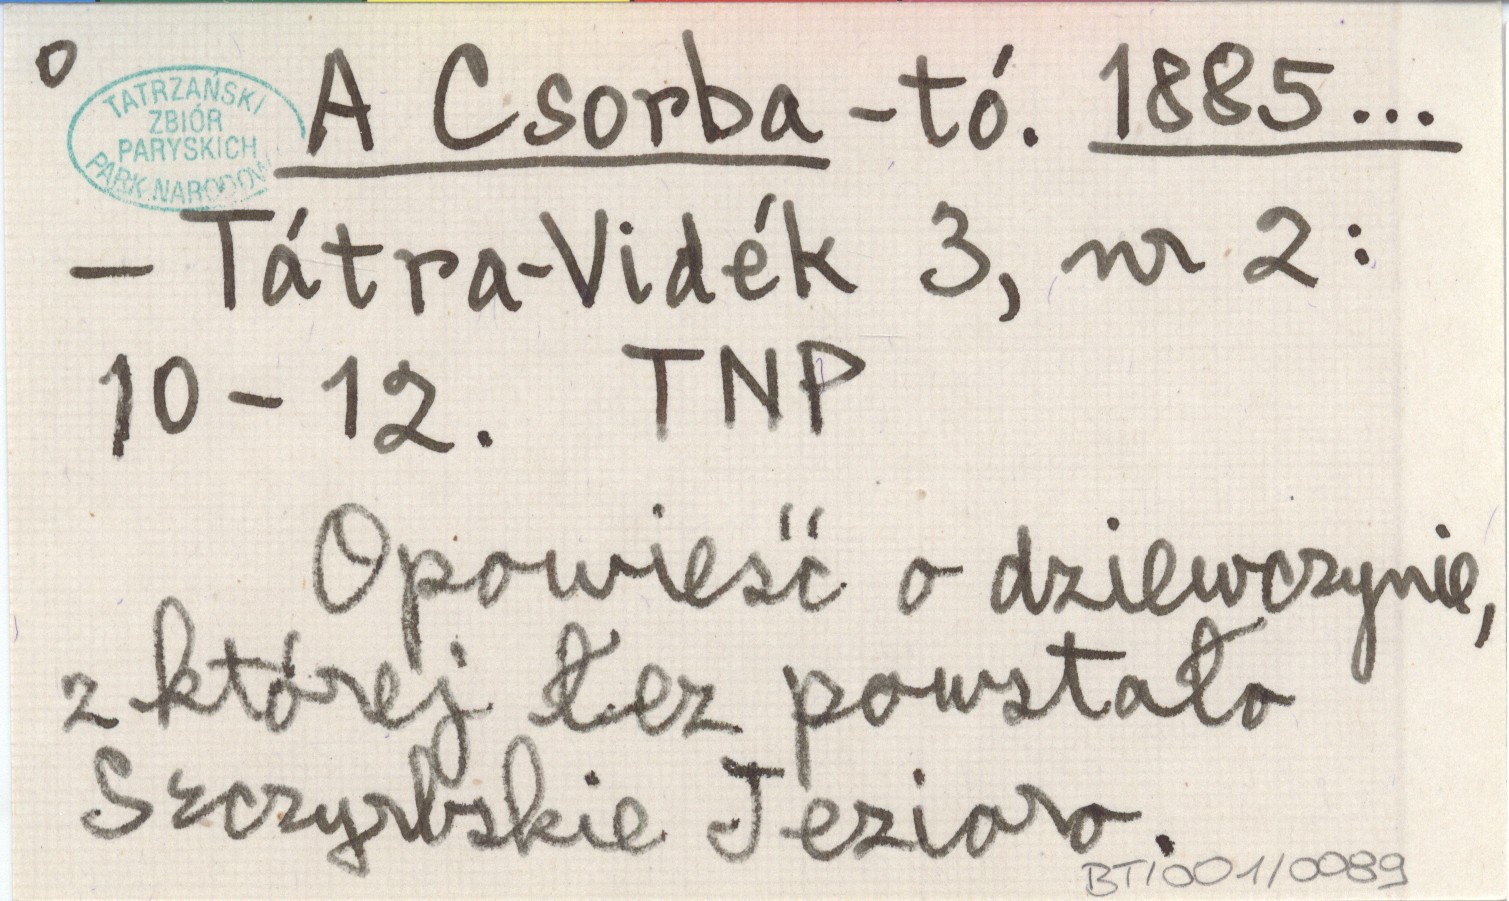 o
TATRZAŃSKI
ZBIÓR
PARYSKICH
PARK NARODOW
A Csorba-tó. 1885...
– Tátra-Vidék 3, nr 2:
10–12. TNP
Opowieść o dziewczynie,
z której łez powstało
Szczyrbskie Jezioro.
BT/001/0089